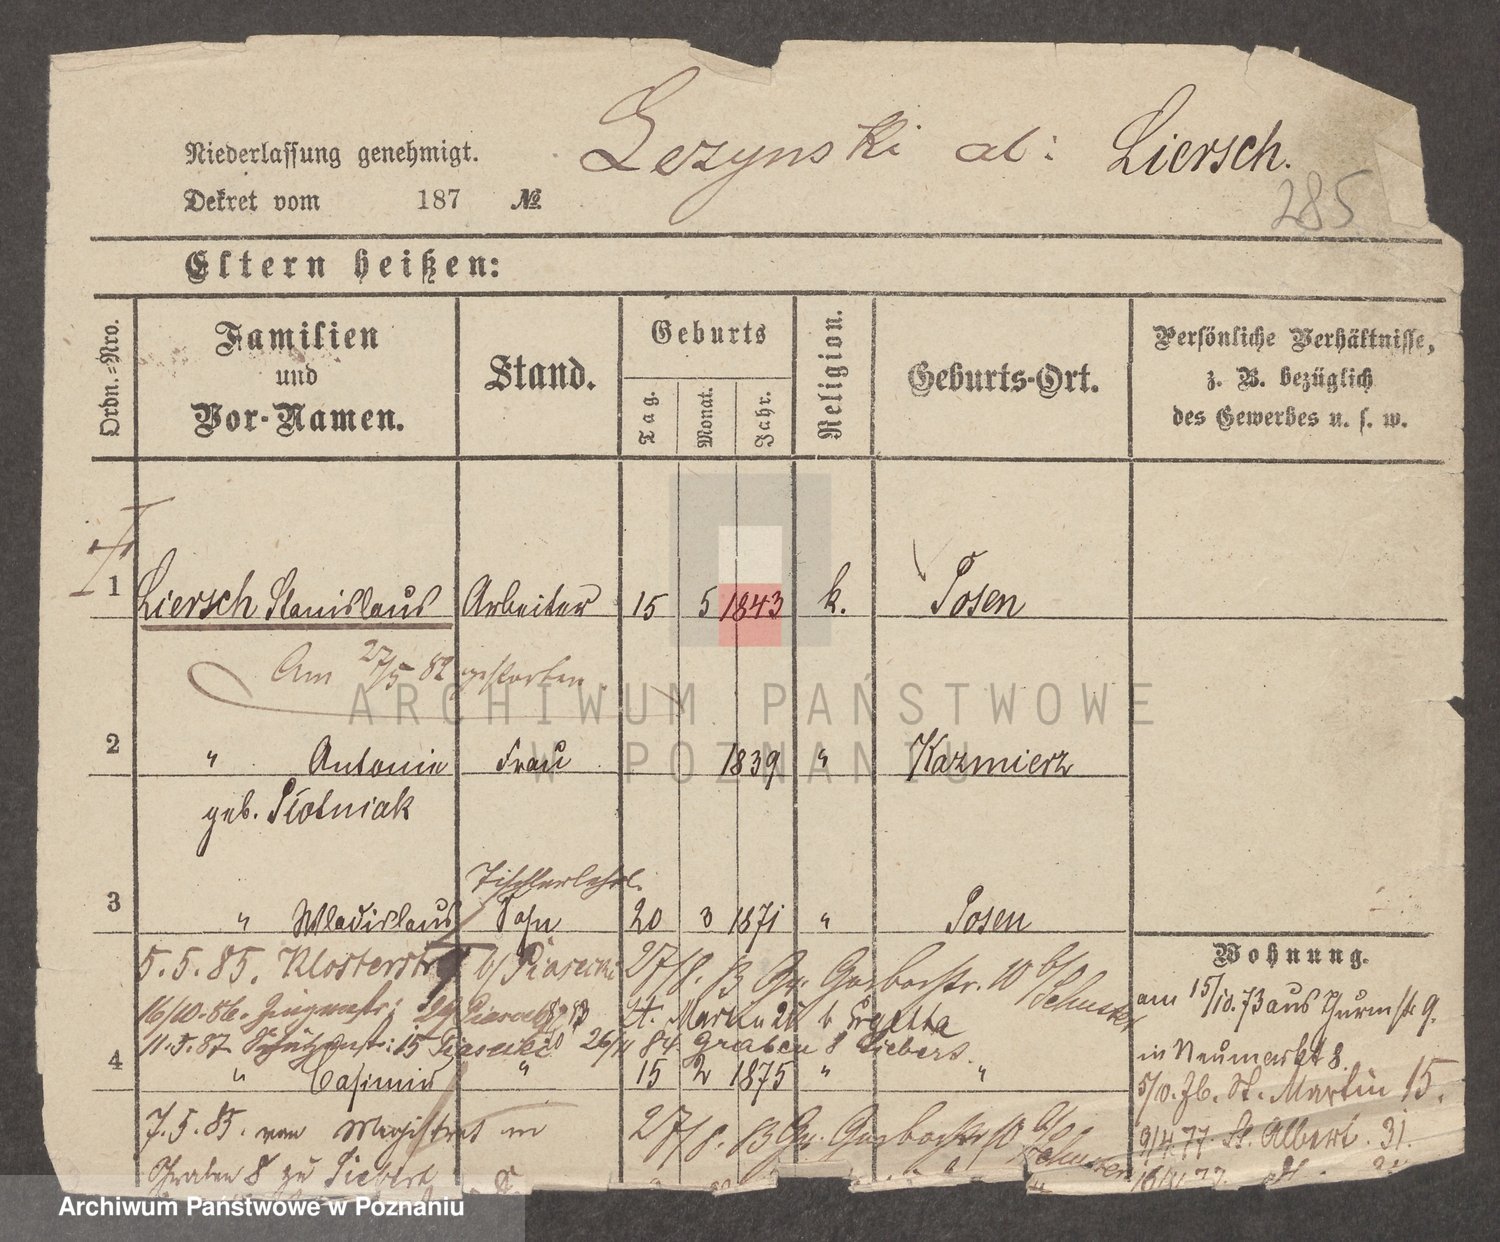 Niederlassung genehmigt.
Lezynski al: Liersch.
Dekret vom 187 №
285
Eltern heißen:
Ordn.-Nro.
Familien und Vor-Namen.
Stand.
Geburts
Tag.
Monat.
Jahr.
Religion.
Geburts-Ort.
Persönliche Verhältnisse,
z. B. bezüglich
des Gewerbes u. s. w.
1 Liersch Stanislaus Arbeiter 15 5 1843 k. Posen
Am 27/5 82 gestorben.
2 " Antonie Frau 1839 " Kazmierz
geb. Plotniak
Tischlerlehrl.
3 " Wladislaus Sohn 20 3 1871 " Posen
5.5.85. Klosterstr b/ Piasecki 27/8. 83 Gr. Gerberstr. 10 b/
16/10.86. St. Martin 26 b
11.5.87 15 Piasecki 26/11 84 Graben 8 Siebert.
4 " Casimir " 15 2 1875 " "
7.5.85. von Magistrat in 27/8. 83 Gr. Gerberstr 10 b/
Graben 8 zu Siebert
Wohnung.
am 15/10.73 aus Thurmstr 9.
in Neumarkt 8.
St. Martin 15.
9/4.77. St. Albert. 31.
ARCHIWUM PAŃSTWOWE
W POZNANIU
Archiwum Państwowe w Poznaniu